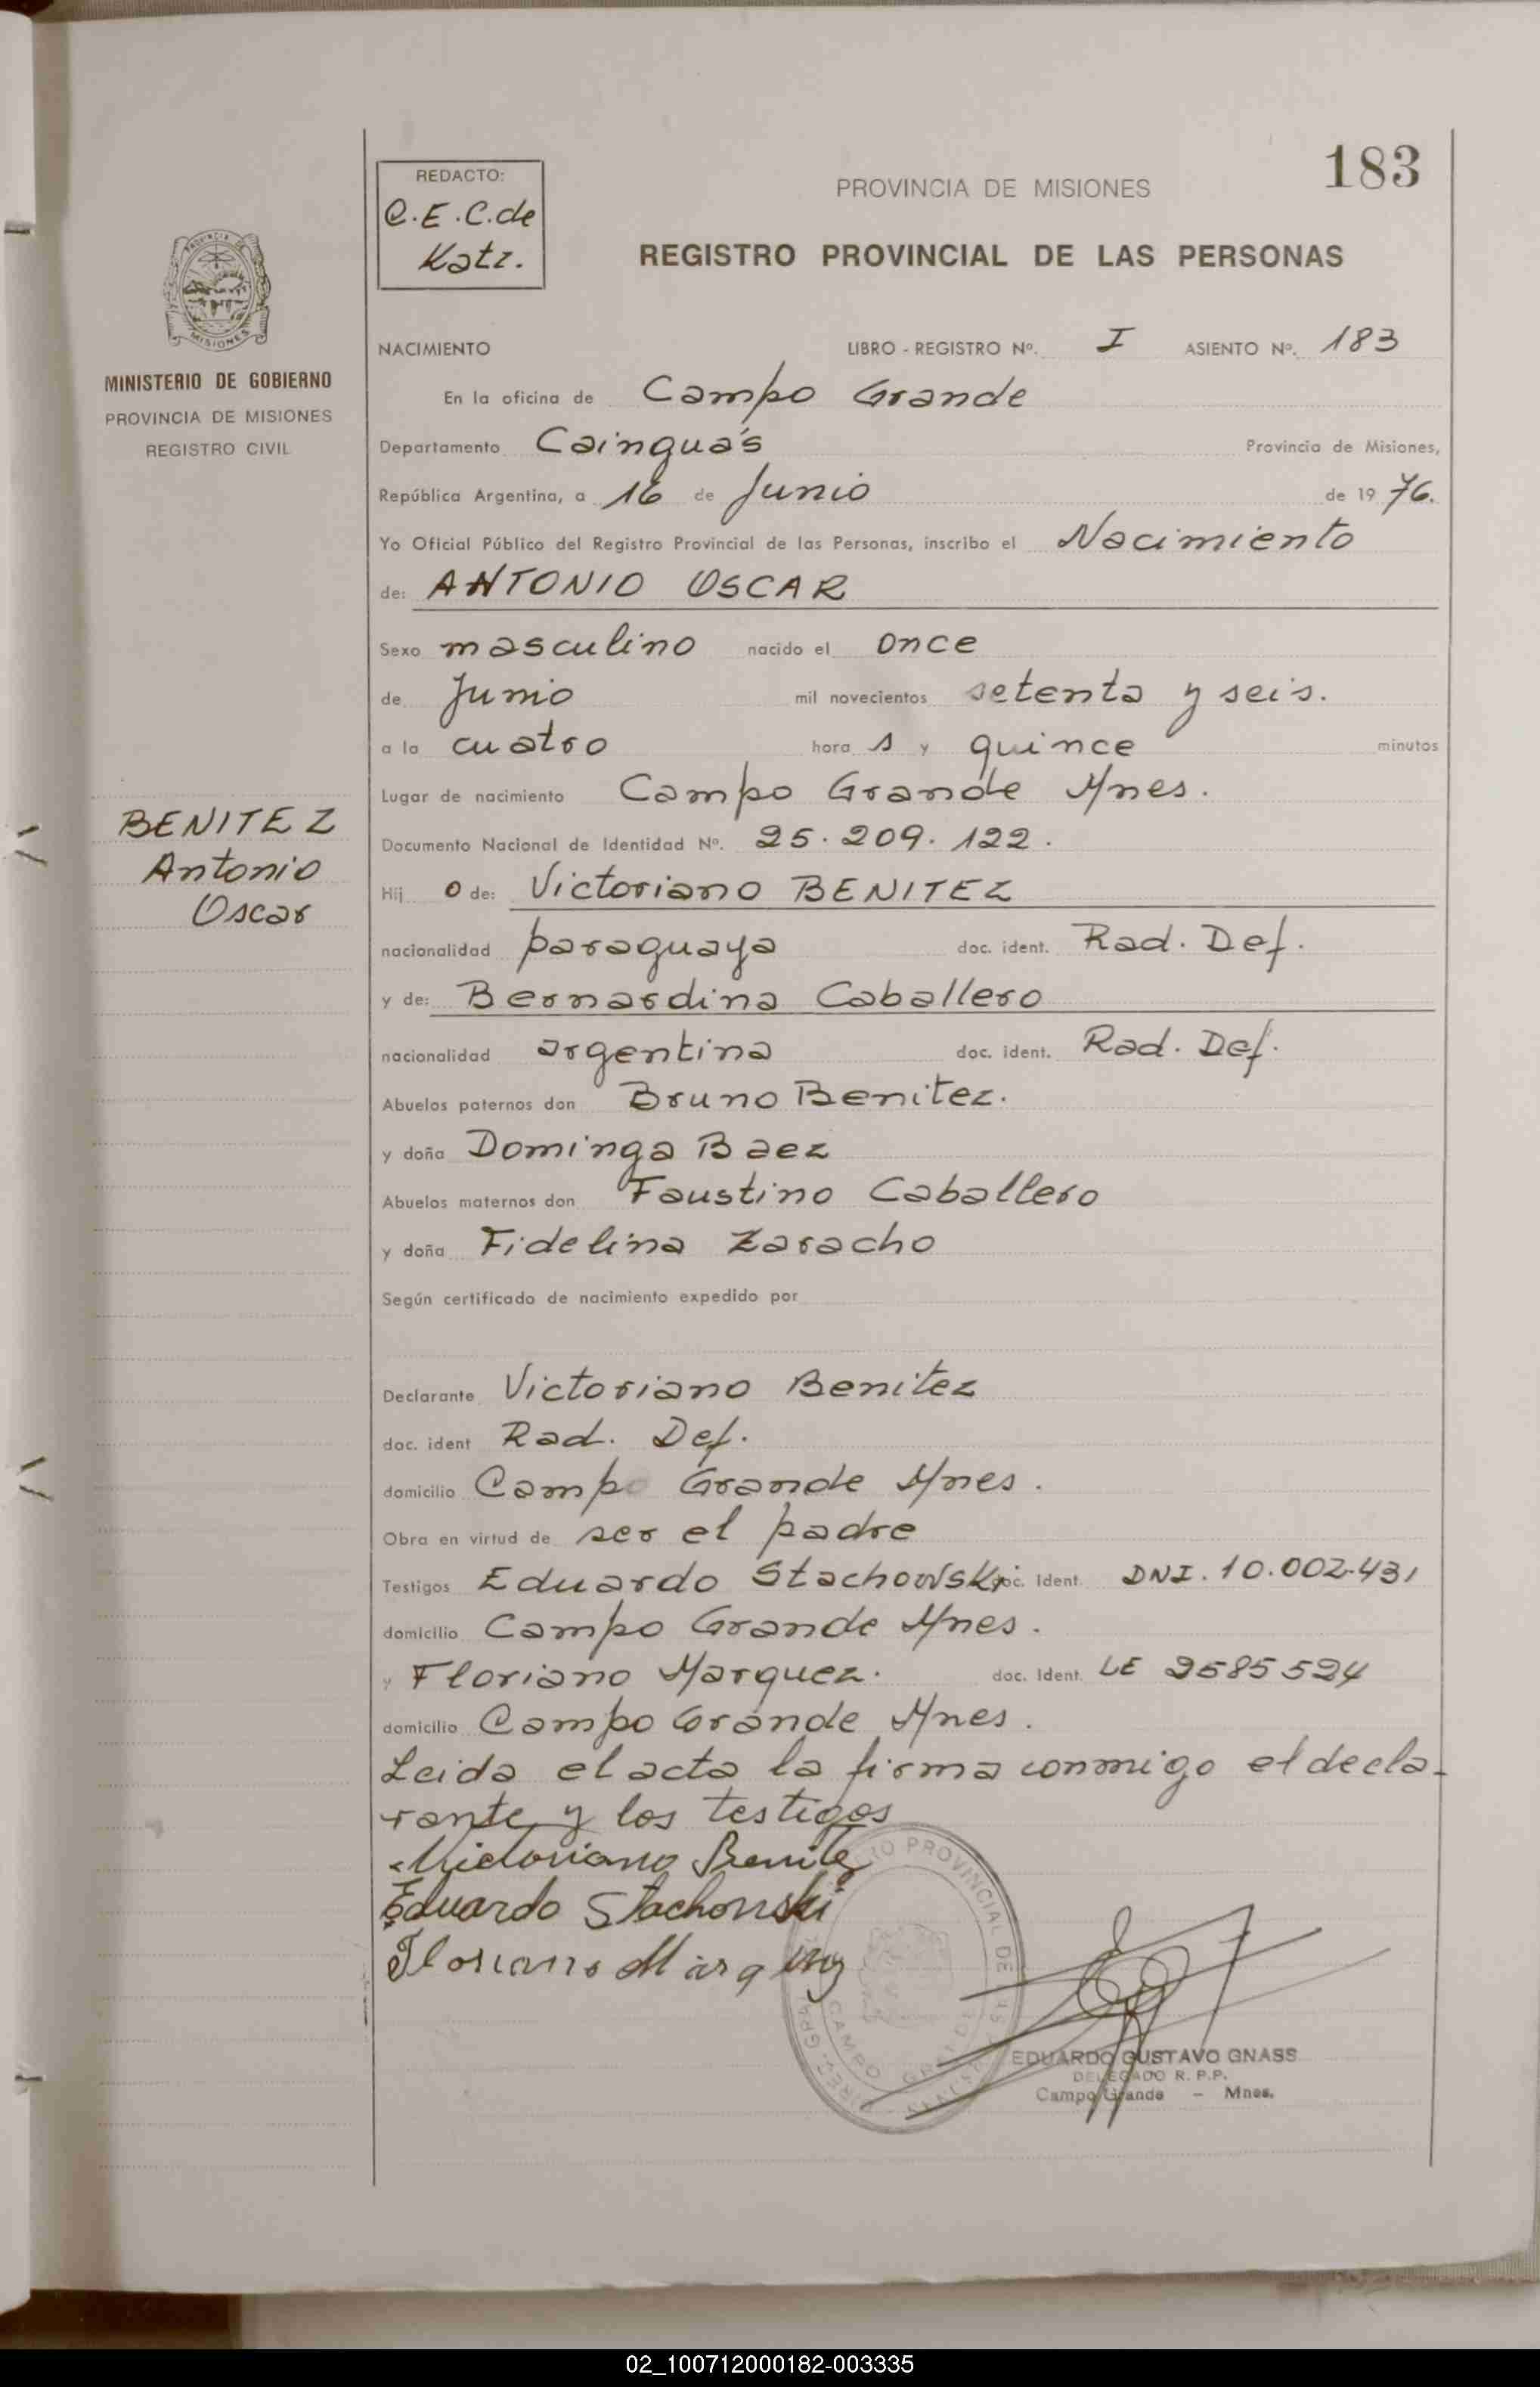 183
REDACTO:
C.E.C.de
Katz.
PROVINCIA DE MISIONES
REGISTRO PROVINCIAL DE LAS PERSONAS
MINISTERIO DE GOBIERNO
PROVINCIA DE MISIONES
REGISTRO CIVIL
NACIMIENTO LIBRO - REGISTRO Nº. I ASIENTO Nº. 183
En la oficina de Campo Grande
Departamento Cainguás Provincia de Misiones,
República Argentina, a 16 de Junio de 19 76.
Yo Oficial Público del Registro Provincial de las Personas, inscribo el Nacimiento
de: ANTONIO OSCAR
Sexo masculino nacido el once
de Junio mil novecientos setenta y seis.
a la cuatro hora s y quince minutos
Lugar de nacimiento Campo Grande Mnes.
BENITEZ
Antonio
Oscar
Documento Nacional de Identidad Nº. 25.209.122.
Hij o de: Victoriano BENITEZ
nacionalidad paraguaya doc. ident. Rad. Def.
y de: Bernardina Caballero
nacionalidad argentina doc. ident. Rad. Def.
Abuelos paternos don Bruno Benitez.
y doña Dominga Baez
Abuelos maternos don Faustino Caballero
y doña Fidelina Zaracho
Según certificado de nacimiento expedido por
Declarante Victoriano Benitez
doc. ident Rad. Def.
domicilio Campo Grande Mnes.
Obra en virtud de ser el padre
Testigos Eduardo Stachowski doc. Ident. DNI. 10.002.431
domicilio Campo Grande Mnes.
y Floriano Marquez. doc. Ident. LE 2585524
domicilio Campo Grande Mnes.
Leida el acta la firma conmigo el decla-
rante y los testigos
Victoriano Benitez
Eduardo Stachowski
Floriano Marquez
EDUARDO GUSTAVO GNASS
DELEGADO R. P.P.
Campo Grande - Mnes.
02_100712000182-003335